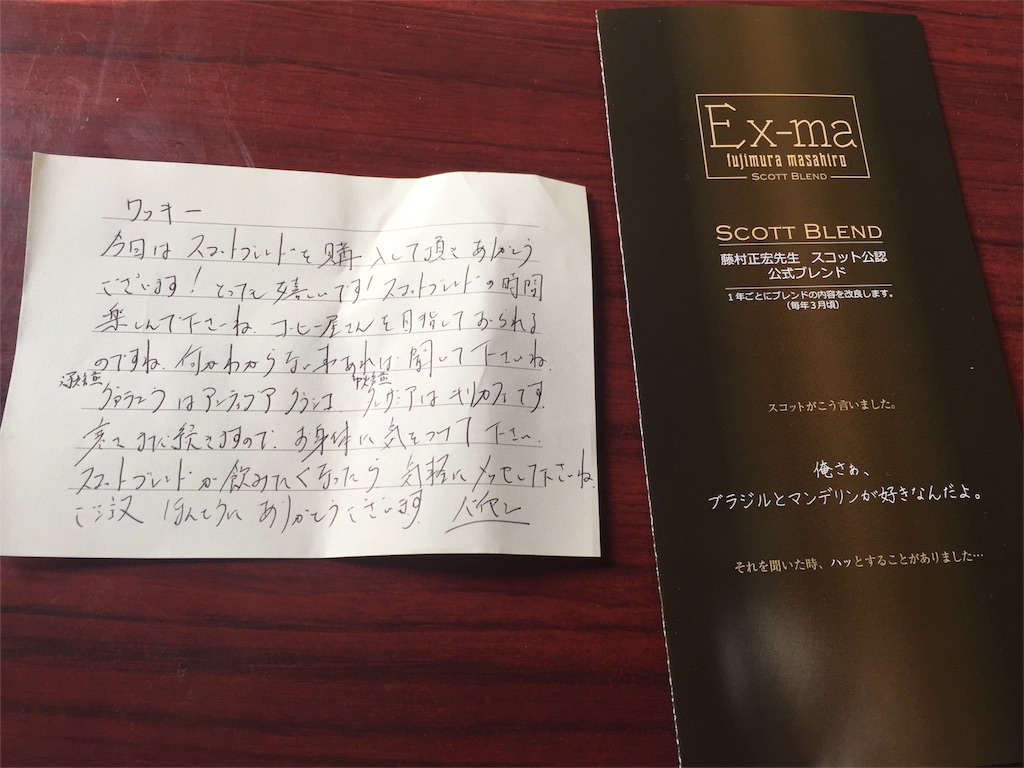 ワッキー
今回はスコットブレンドを購入して頂きありがとう
ございます！とっても嬉しいです！スコットブレンドの時間
楽しんで下さいね。コーヒー屋さんを目指しておられる
のですね。何かわからない事あれば聞いて下さいね。
深煎 中煎
グァテマラはアンティグア
はキリカフェです。
寒さまだ続きますので、お身体に気をつけて下さい。
スコットブレンドが飲みたくなったら気軽にメッセして下さいね。
ご注文ほんとうにありがとうございます。
Ex-ma
fujimura masahiro
SCOTT BLEND
SCOTT BLEND
藤村正宏先生 スコット公認
公式ブレンド
1年ごとにブレンドの内容を改良します。
（毎年3月頃）
スコットがこう言いました。
俺さぁ、
ブラジルとマンデリンが好きなんだよ。
それを聞いた時、ハッとすることがありました…